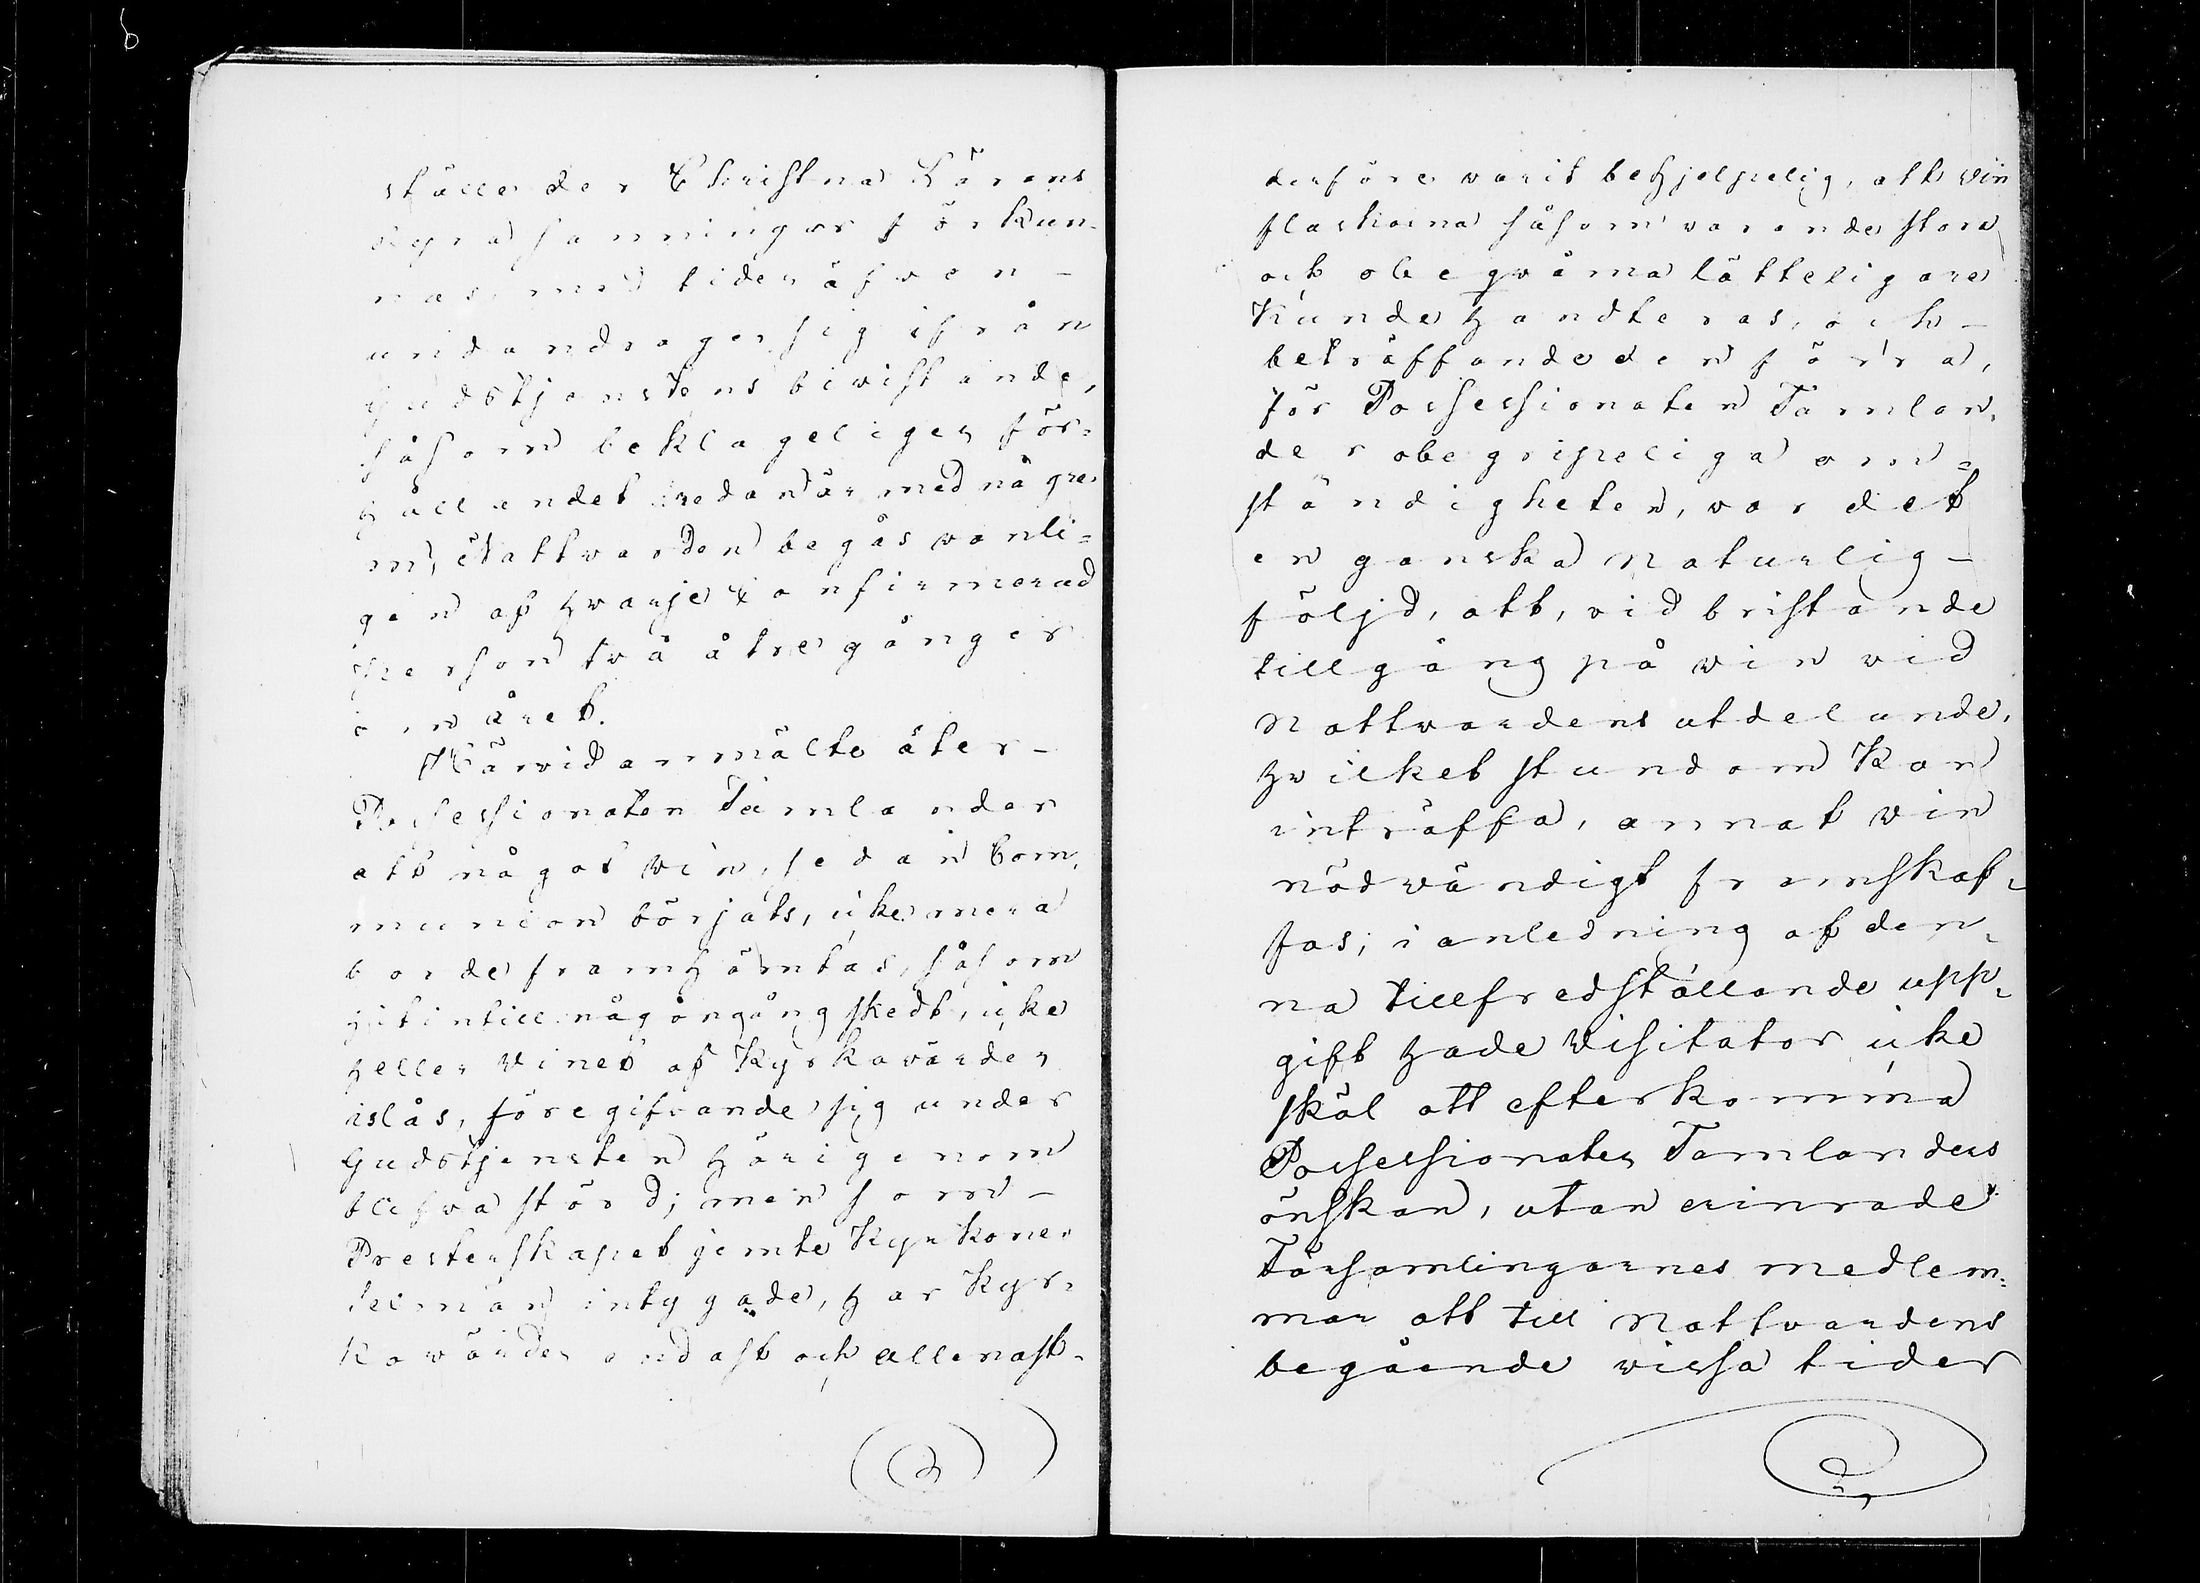 ställe der Christna Lärans
dyra sanningar förkun-
nas, med tiden äfwen -
undandrager sig ifrån
Gudstjenstens bivistande,
såsom beklageligen för=
hållandet redan är med någre
m, Nattwarden begås vanli=
gen af hvarje Confirmerad
person två å tre gånger
om året.
Härvid anmälte åter-
Possessionaten Tamlander
att något Vin, sedan Com,
munion börjats, icke mera
borde framhämtas, såsom
hitintill någon gång skedt, icke
heller Vinet af Kyrkovärden
islås, föregifvande sig under
Gudstjensten härigenom
blifva störd; men som -
Presterskapet jemte Kyrkone,
intygade, har Kyr,
kovärden endast och allenast.
derföre varit behjelpelig, att Vin
flaskorna såsom varande stora
och obeqväma lätteligare
Kunde handteras, och -
beträffande den förra,
för Possessionaten Tamlan,
der obegripeliga om=
ständigheten, var det
en ganska Naturlig -
följd, att, vid bristande
tillgång på vin vid
Nattvardens utdelande,
hvilket stundom Kan
inträffa, annat Vin
nödvändigt framskaf,
fas; i anledning af den,
na tillfredställande upp,
gift hade Visitator icke
skäl att efterkomma
Possessionaten Tamlanders
önskan, utan erinrade
Församlingarnes medlem=
mar att till Nattvardens
begående vissa tider